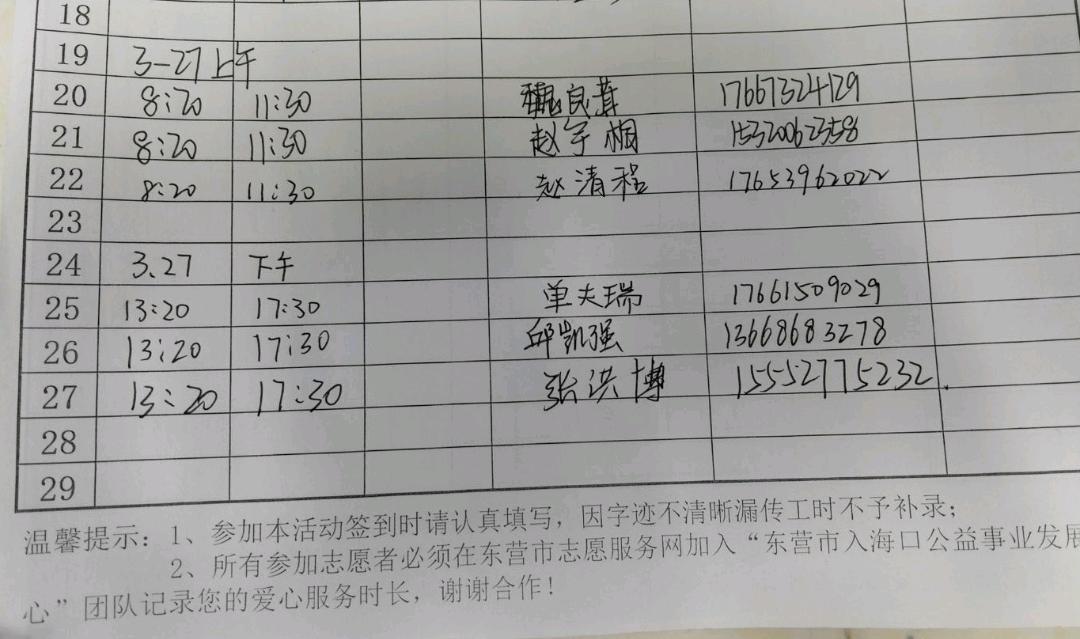 18
19 3-27上午
20 8:20 11:30 魏良茸 17667324129
21 8:20 11:30 赵宇桐 15320062358
22 8:20 11:30 赵清程 17653962022
23
24 3.27 下午
25 13:20 17:30 单夫瑞 17661509029
26 13:20 17:30 邱凯强 13668683278
27 13:20 17:30 张洪博 15552775232.
28
29
温馨提示：1、参加本活动签到时请认真填写，因字迹不清晰漏传工时不予补录；
2、所有参加志愿者必须在东营市志愿服务网加入“东营市入海口公益事业发展
心”团队记录您的爱心服务时长，谢谢合作！